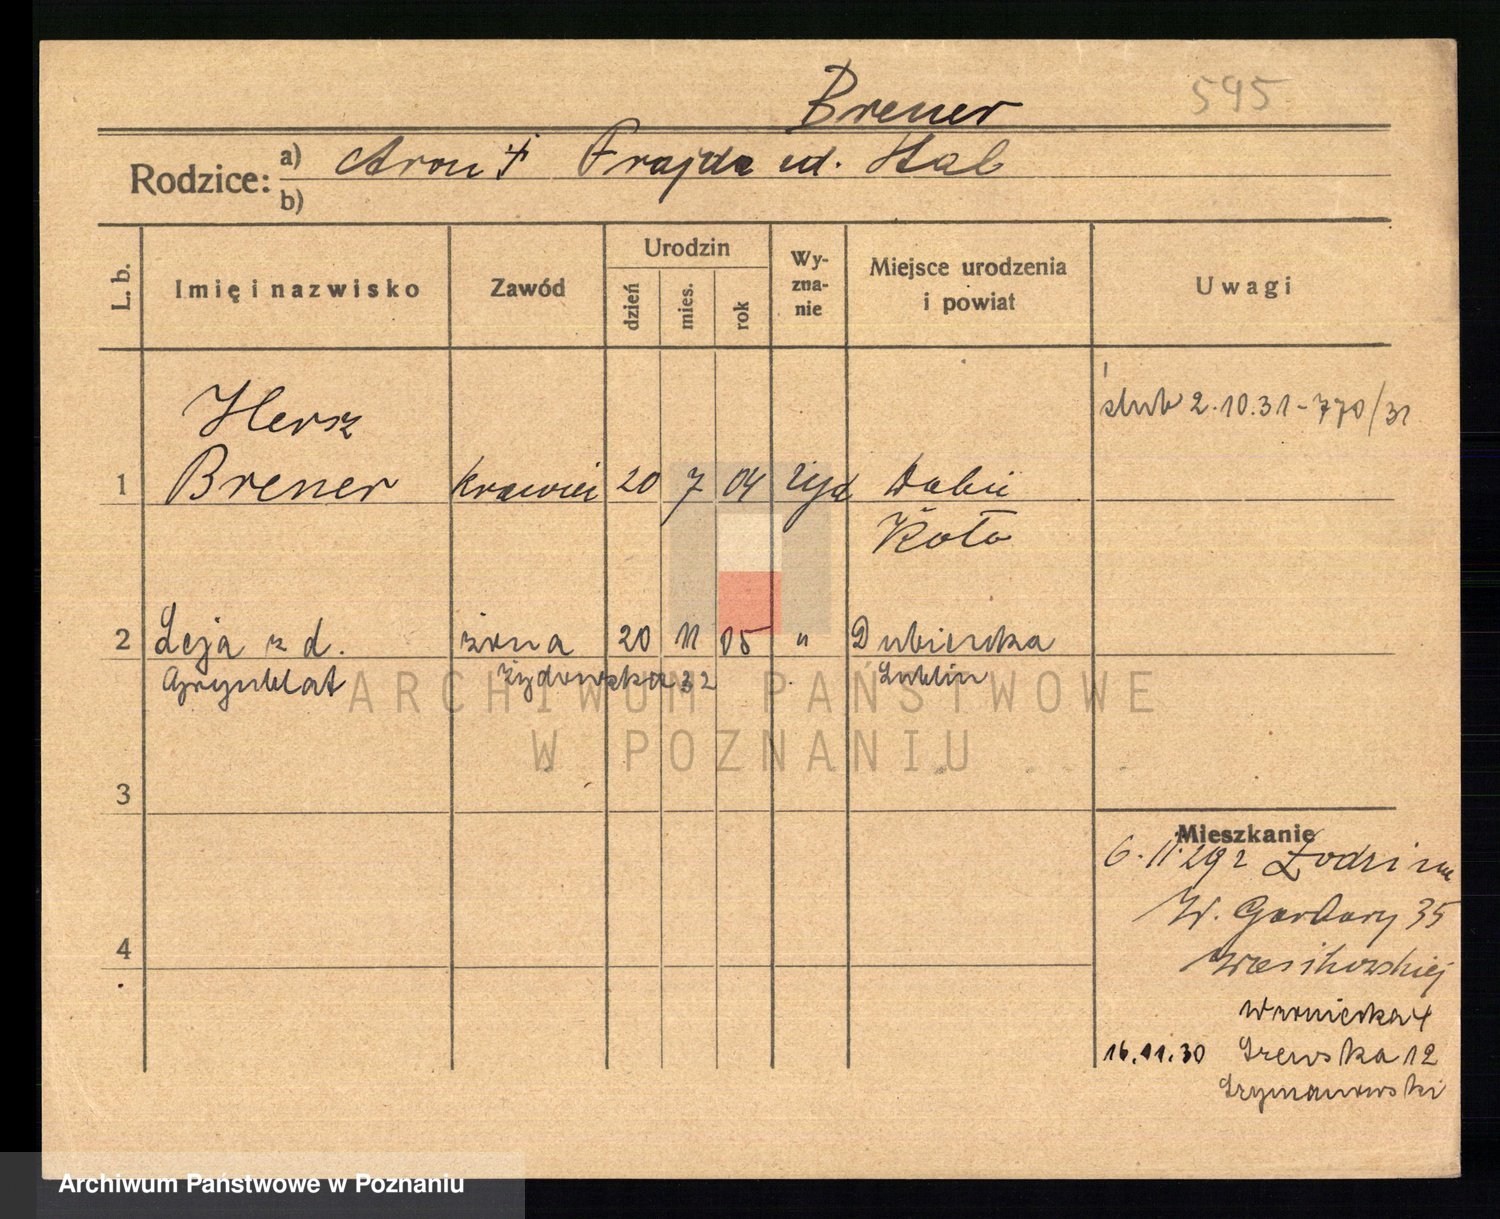 Brener 595
Rodzice: a) Aron i Frajda ud. Hal
b)
L. b. Imię i nazwisko Zawód Urodzin dzień mies. rok Wyznanie Miejsce urodzenia i powiat Uwagi
Hersz ślub 2.10.31-770/31
1 Brener krawiec 20 7 04 żyd Dabie
Koło
2 Leja z d. żona 20 11 05 " Dubienka
Grynblat Żydowska 32 Lublin
ARCHIWUM PAŃSTWOWE
W POZNANIU
3
Mieszkanie
6.11.29 z Łodzi
W. Garbary 35
4
Warnicka 4
16.11.30 Szewska 12
Szymanowski
Archiwum Państwowe w Poznaniu